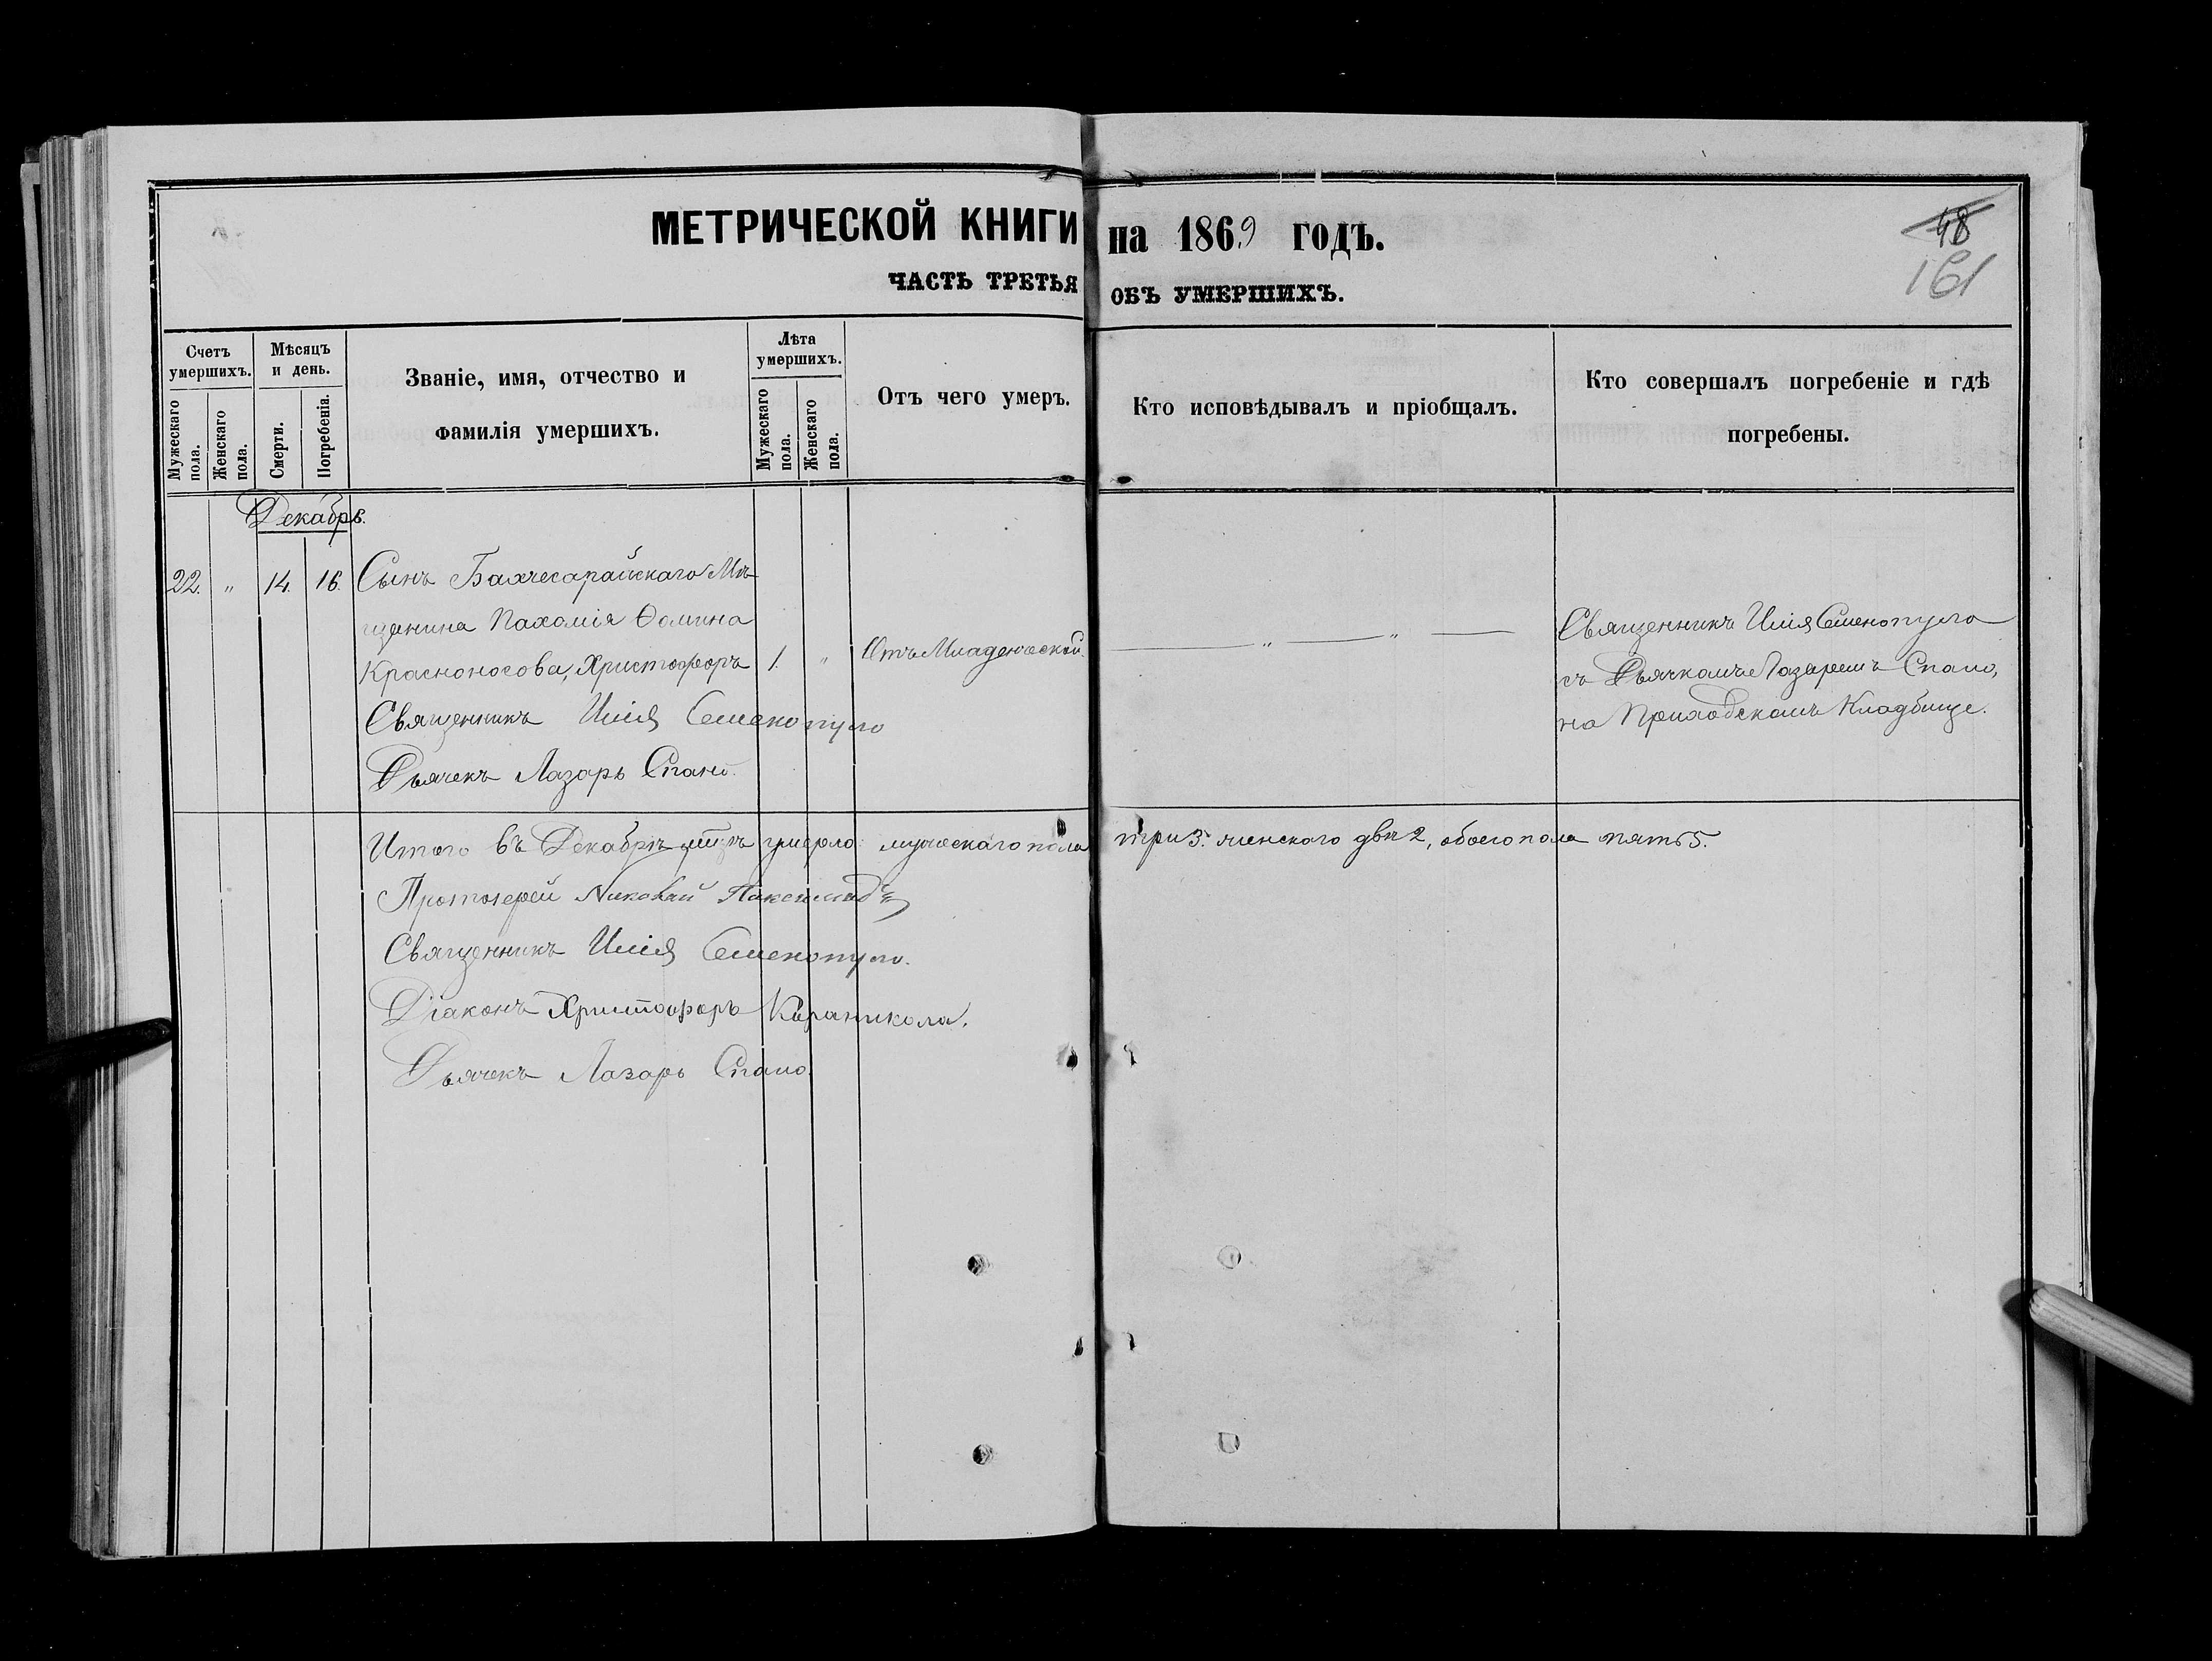 МЕТРИЧЕСКОЙ КНИГИ на 1869 годъ.
48
161
ЧАСТЬ ТРЕТЬЯ ОБЪ УМЕРШИХЪ.
Счетъ умершихъ.
Мужескаго пола.
Женскаго пола.
Мѣсяцъ и день.
Смерти.
Погребенія.
Званіе, имя, отчество и
фамилія умершихъ.
Лѣта умершихъ.
Мужескаго пола.
Женскаго пола.
Отъ чего умеръ.
Кто исповѣдывалъ и пріобщалъ.
Кто совершалъ погребеніе и гдѣ
погребены.
Декабрь.
22. " 14. 16. Сынъ Бахчесарайскаго Мѣ-
щанина Пахомія Ѳомина
Красноносова, Христофоръ 1. " Отъ Младенческой.
Священникъ Илія Семенопуло
Дьячекъ Лазарь Спано.
— " — " —
Священникъ Илія Семенопуло
съ Дьячкомъ Лазаремъ Спано,
на Приходскомъ Кладбище.
Итого въ Декабрѣ умерло: мужескаго пола три 3. женскаго двѣ 2, обоего пола пять 5.
Протоіерей Николай
Священникъ Илія Семенопуло.
Діаконъ Христофоръ Кираникола.
Дьячекъ Лазарь Спано.